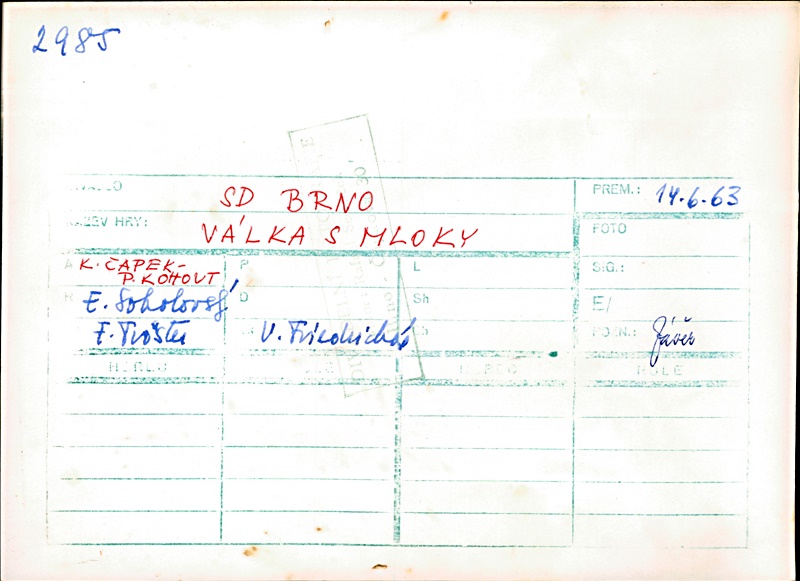 2985
DIVADLO
SD BRNO
PREM.: 14.6.63
NÁZEV HRY:
VÁLKA S MLOKY
FOTO
A K. ČAPEK-
P. KOHOUT
P
L
SIG.:
R E. Sokolovský
D
Sh
E/
F. Tröster
V. Friedrichová
POZN.: Závěr
HEREC
HEREC
ROLE